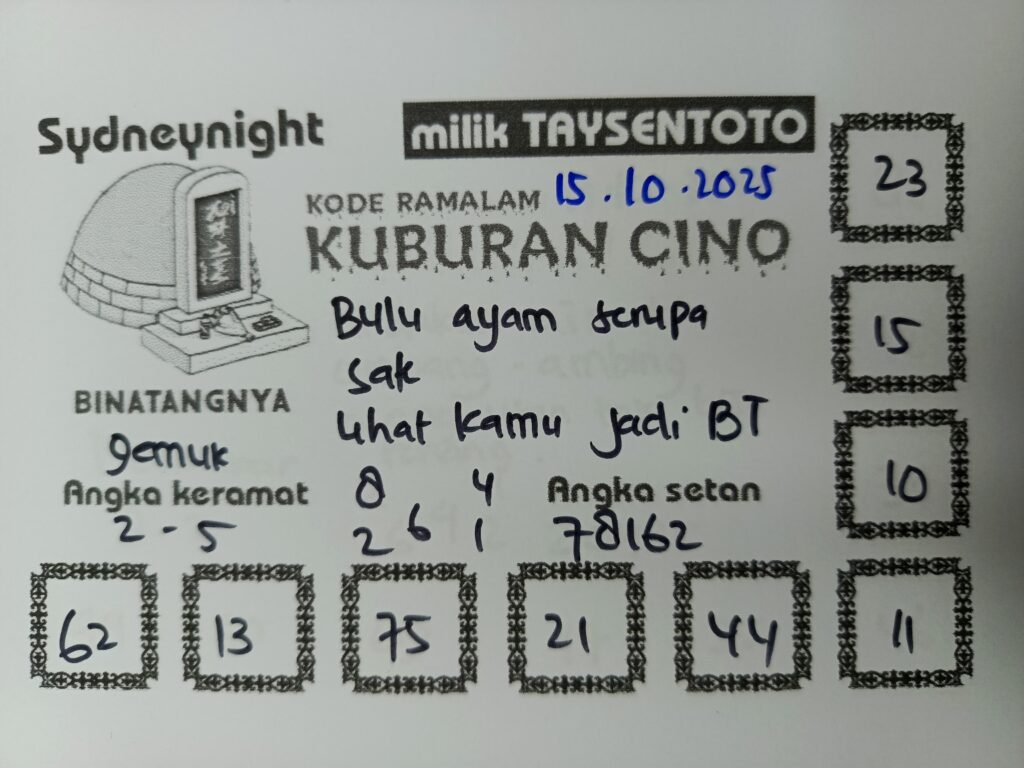 Sydneynight
milik TAYSENTOTO
KODE RAMALAM 15.10.2025
KUBURAN CINO
Bulu ayam serupa
sak
lihat kamu jadi BT
BINATANGNYA
gemuk
Angka keramat
2 - 5
8 4
6
2 1
Angka setan
78162
23
15
10
62 13 75 21 44 11